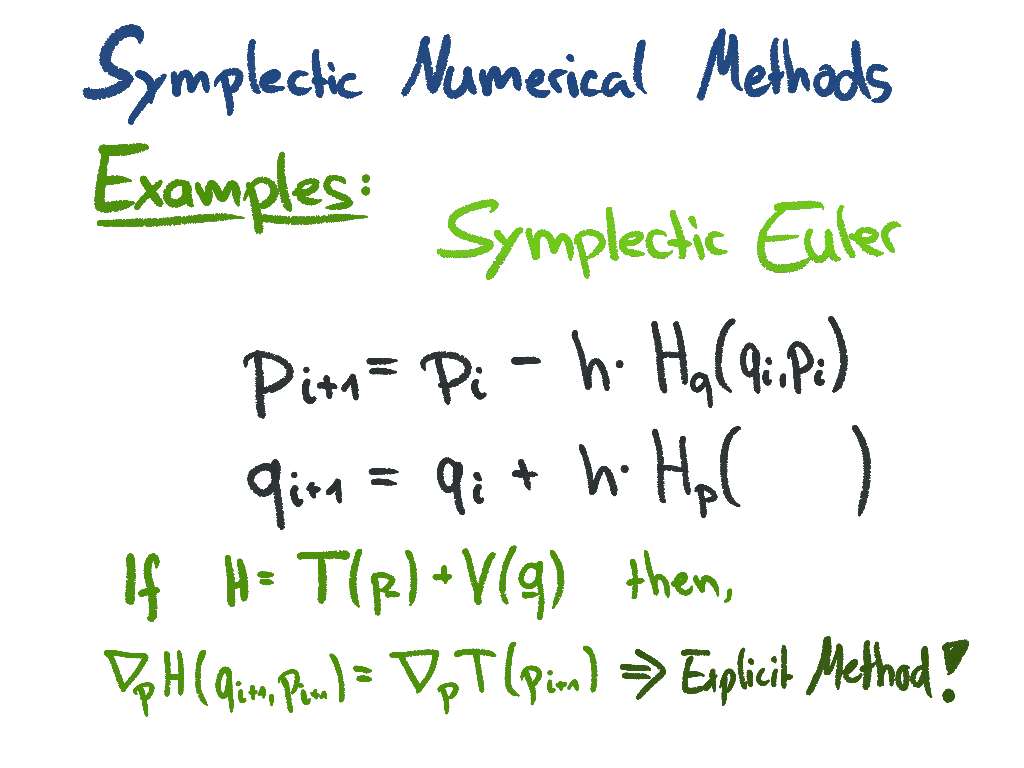 Symplectic Numerical Methods
Examples:
Symplectic Euler
p_{i+1} = p_i - h · H_q(q_i, p_i)
q_{i+1} = q_i + h · H_p( )
If H = T(p) + V(q) then,
∇_p H(q_{i+1}, p_{i+1}) = ∇_p T(p_{i+1}) ⇒ Explicit Method!